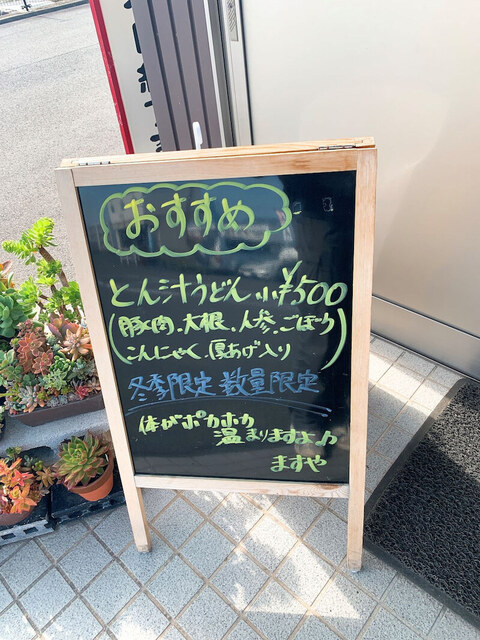 おすすめ
とん汁うどん 小¥500
(豚肉、大根、人参、ごぼう
こんにゃく、厚あげ入り)
冬季限定 数量限定
体がポカポカ
温まりますよ♪
ますや